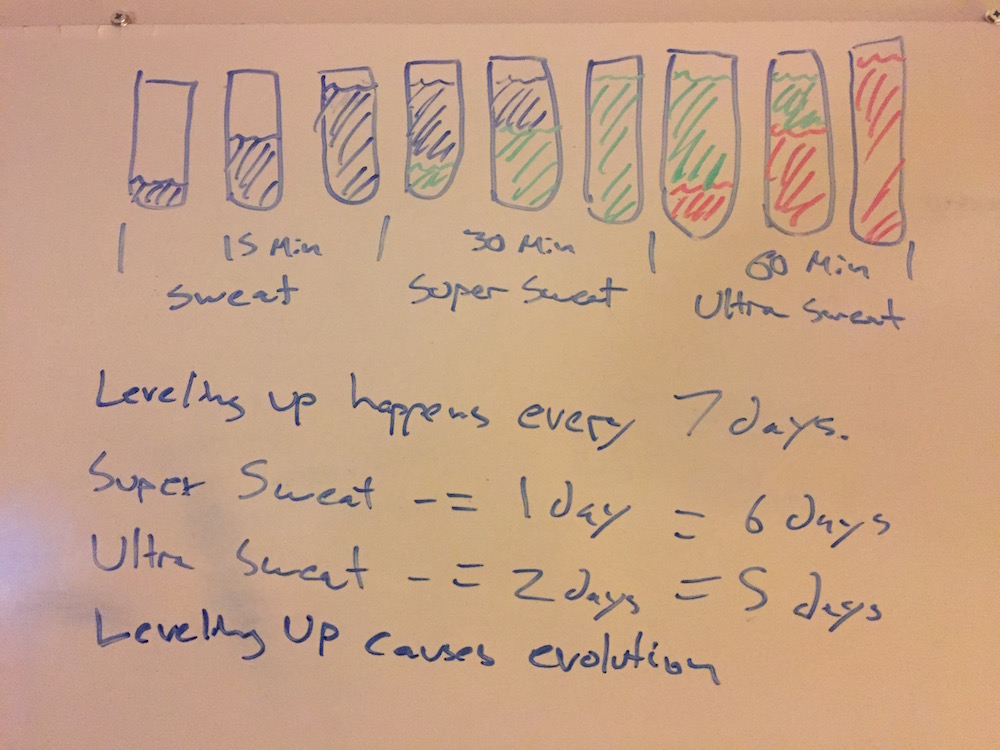 15 Min
30 Min
60 Min
Sweat
Super Sweat
Ultra Sweat
Leveling up happens every 7 days.
Super Sweat -= 1 day = 6 days
Ultra Sweat -= 2 days = 5 days
Leveling Up causes evolution